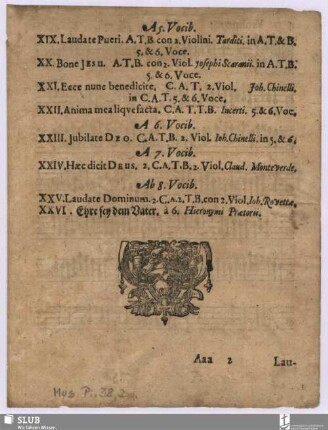 A 5. Vocib.
XIX. Laudate Pueri. A.T.B. con 2. Violini. Tarditi. in A.T.& B.
5. & 6. Voce.
XX. Bone JESU. A.T.B. con 2. Viol. Josephi Scaranii. in A.T.B.
5. & 6. Vuce.
XXI. Ecce nunc benedicite, C. A. T. 2. Viol. Joh. Chinelli.
in C.A.T. 5. & 6. Voce.
XXII. Anima mea liqvefacta. C.A.T.T.B. Incerti. 5. & 6. Voc.
A 6. Vocib.
XXIII. Jubilate DEO. C.A.T.B. 2. Viol. Joh. Chinelli. in 5. & 6.
A 7. Vocib.
XXIV. Hæc dicit DEUS. 2. C.A.T.B. 2. Viol. Claud. Monteverde.
Ab 8. Vocib.
XXV. Laudate Dominum. 2. C.A. 2. T.B. con 2. Viol. Joh. Rovettæ.
XXVI. Ehre sey dem Vater. à 6. Hieronymi Prætorii.
Aaa 2 Lau-
Mus. P. 38,2
SLUB
Wir führen Wissen.